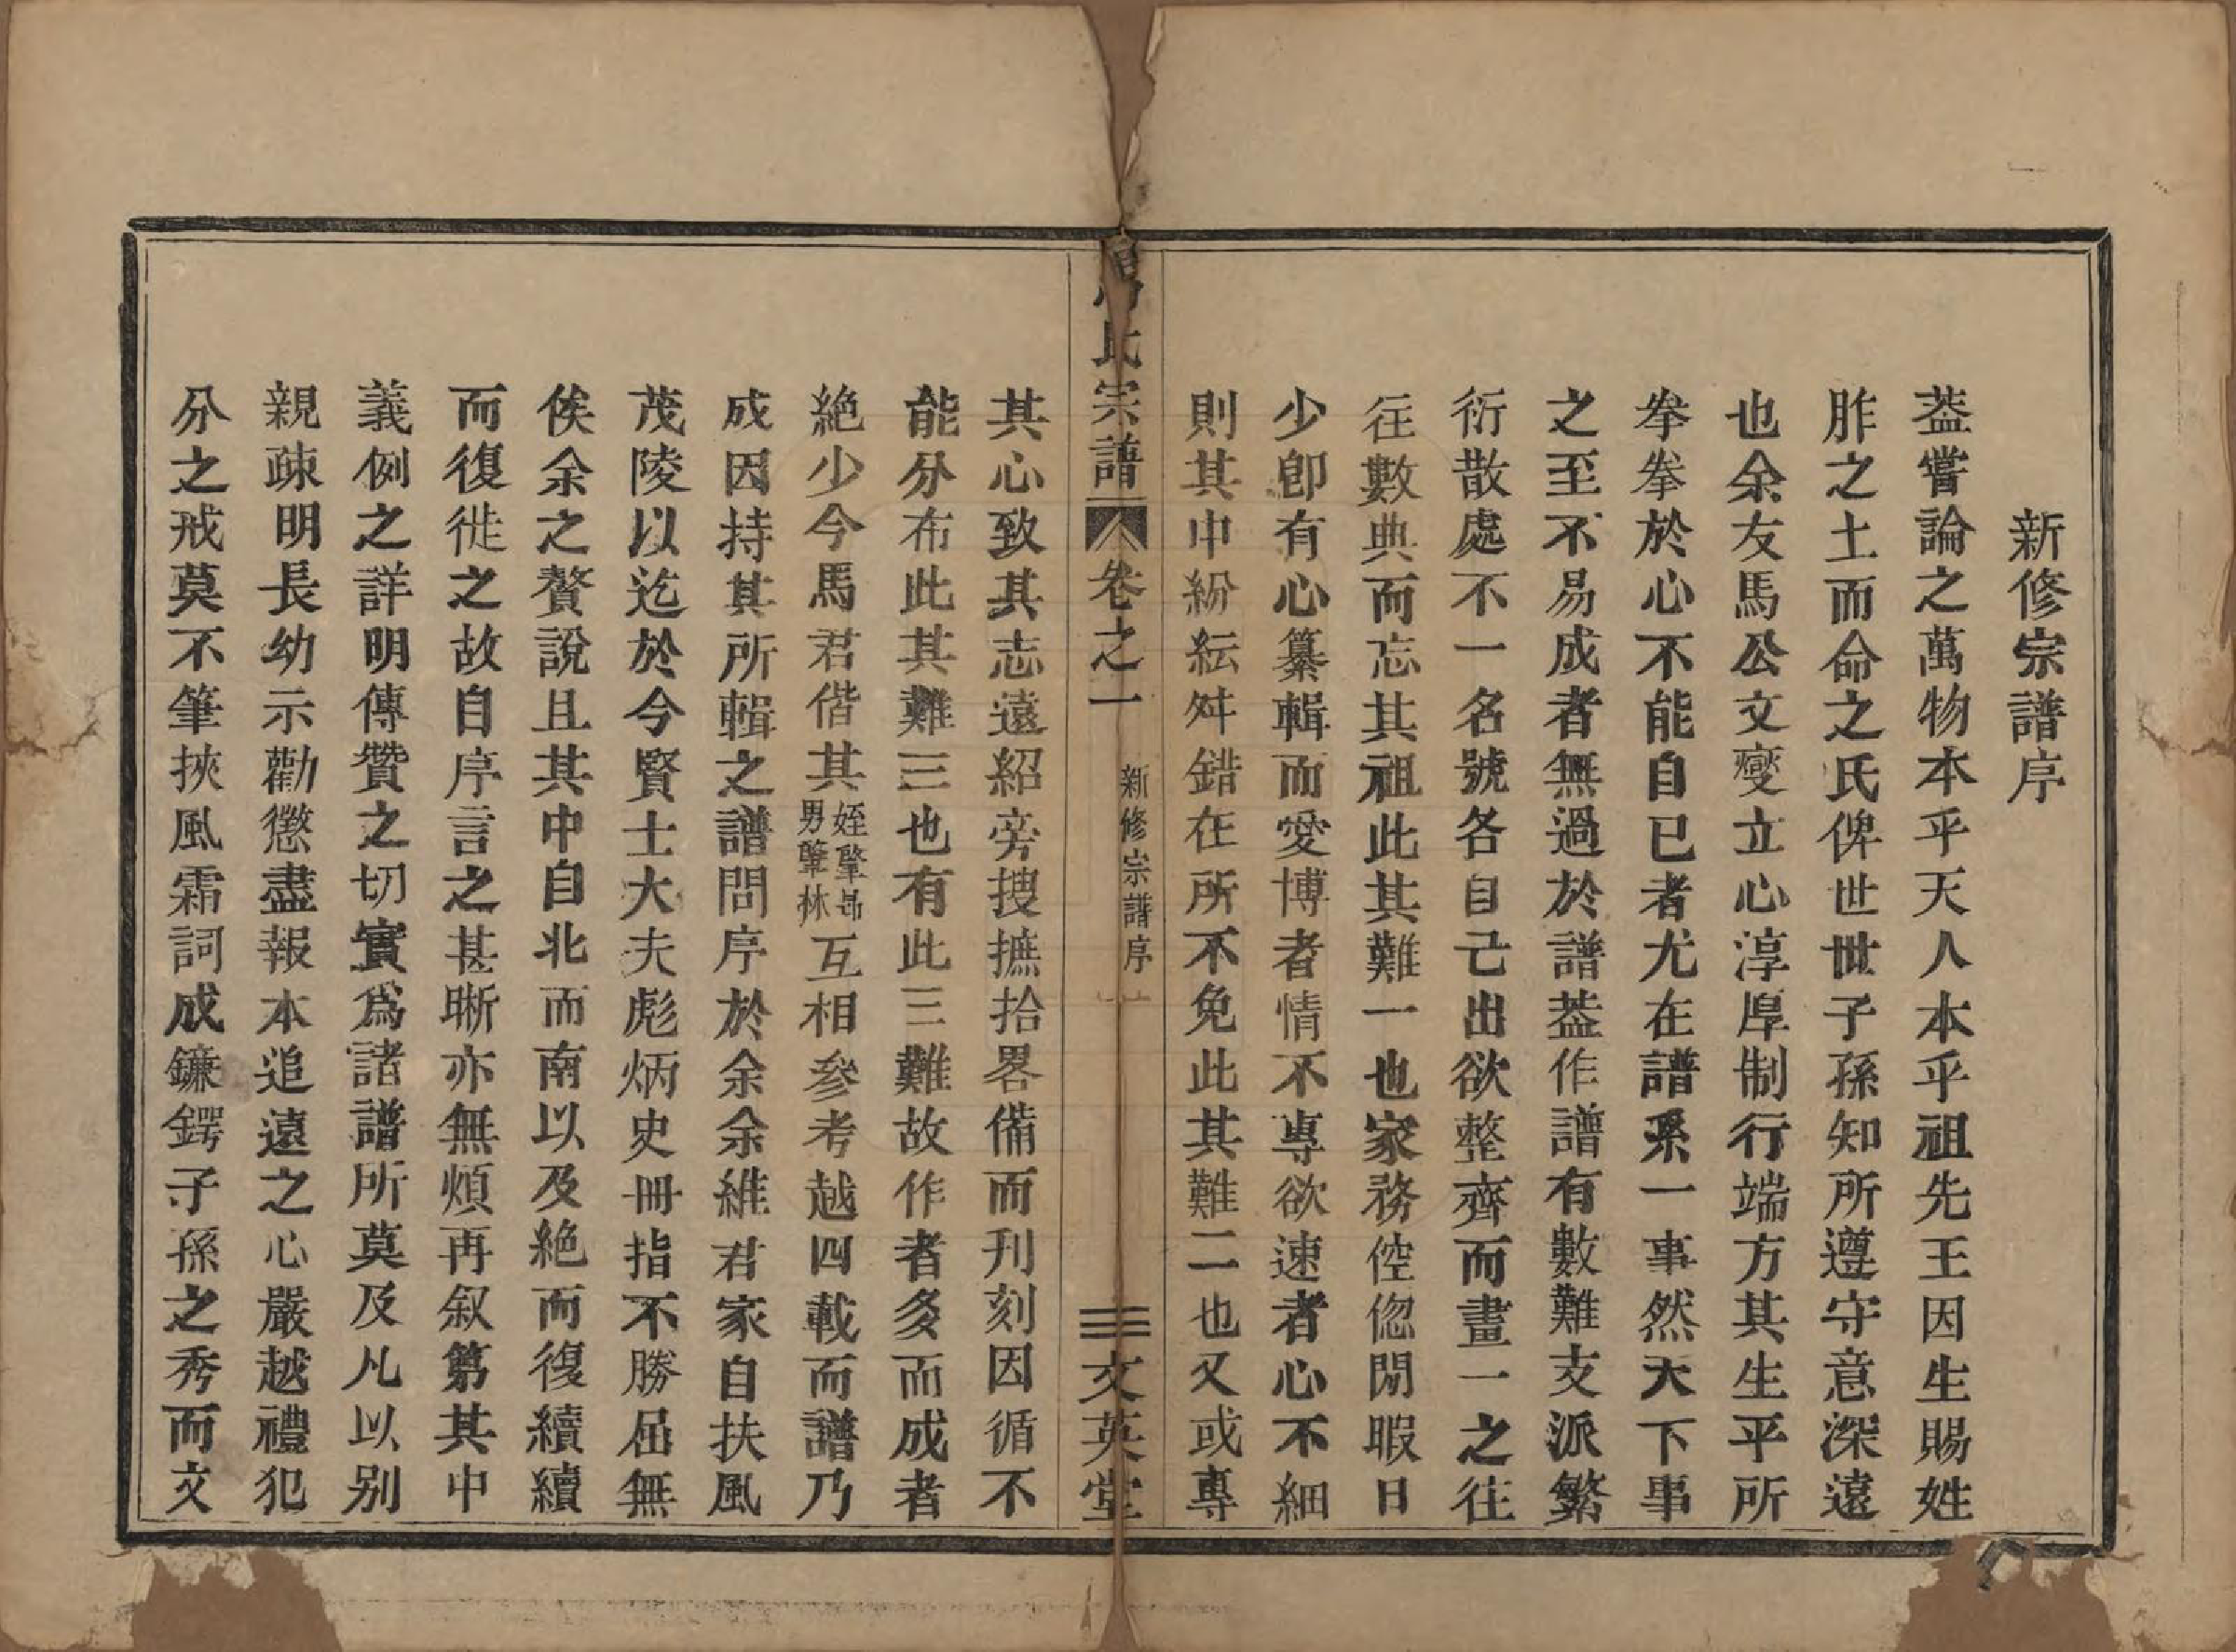 新修宗譜序
葢嘗論之萬物本乎天人本乎祖先王因生賜姓
胙之土而命之氏俾世世子孫知所遵守意深遠
也余友馬公文燮立心淳厚制行端方其生平所
拳拳於心不能自已者尤在譜系一事然天下事
之至不易成者無過於譜葢作譜有數難支派繁
衍散處不一名號各自己出欲整齊而畫一之往
往數典而忘其祖此其難一也家務倥偬閒暇日
少卽有心纂輯而愛博者情不專欲速者心不細
則其中紛紜舛錯在所不免此其難二也又或專
氏宗譜 卷之一 新修宗譜序 三 文英堂
其心致其志遠紹旁搜摭拾畧備而刋刻因循不
能分布此其難三也有此三難故作者多而成者
絶少今馬君偕其姪肇昂男肇林互相參考越四載而譜乃
成因持其所輯之譜問序於余余維君家自扶風
茂陵以迄於今賢士大夫彪炳史冊指不勝屈無
俟余之贅說且其中自北而南以及絶而復續續
而復徙之故自序言之甚晰亦無煩再叙第其中
義例之詳明傳贊之切實爲諸譜所莫及凡以别
親疎明長幼示勸懲盡報本追遠之心嚴越禮犯
分之戒莫不筆挾風霜詞成鐮鍔子孫之秀而文